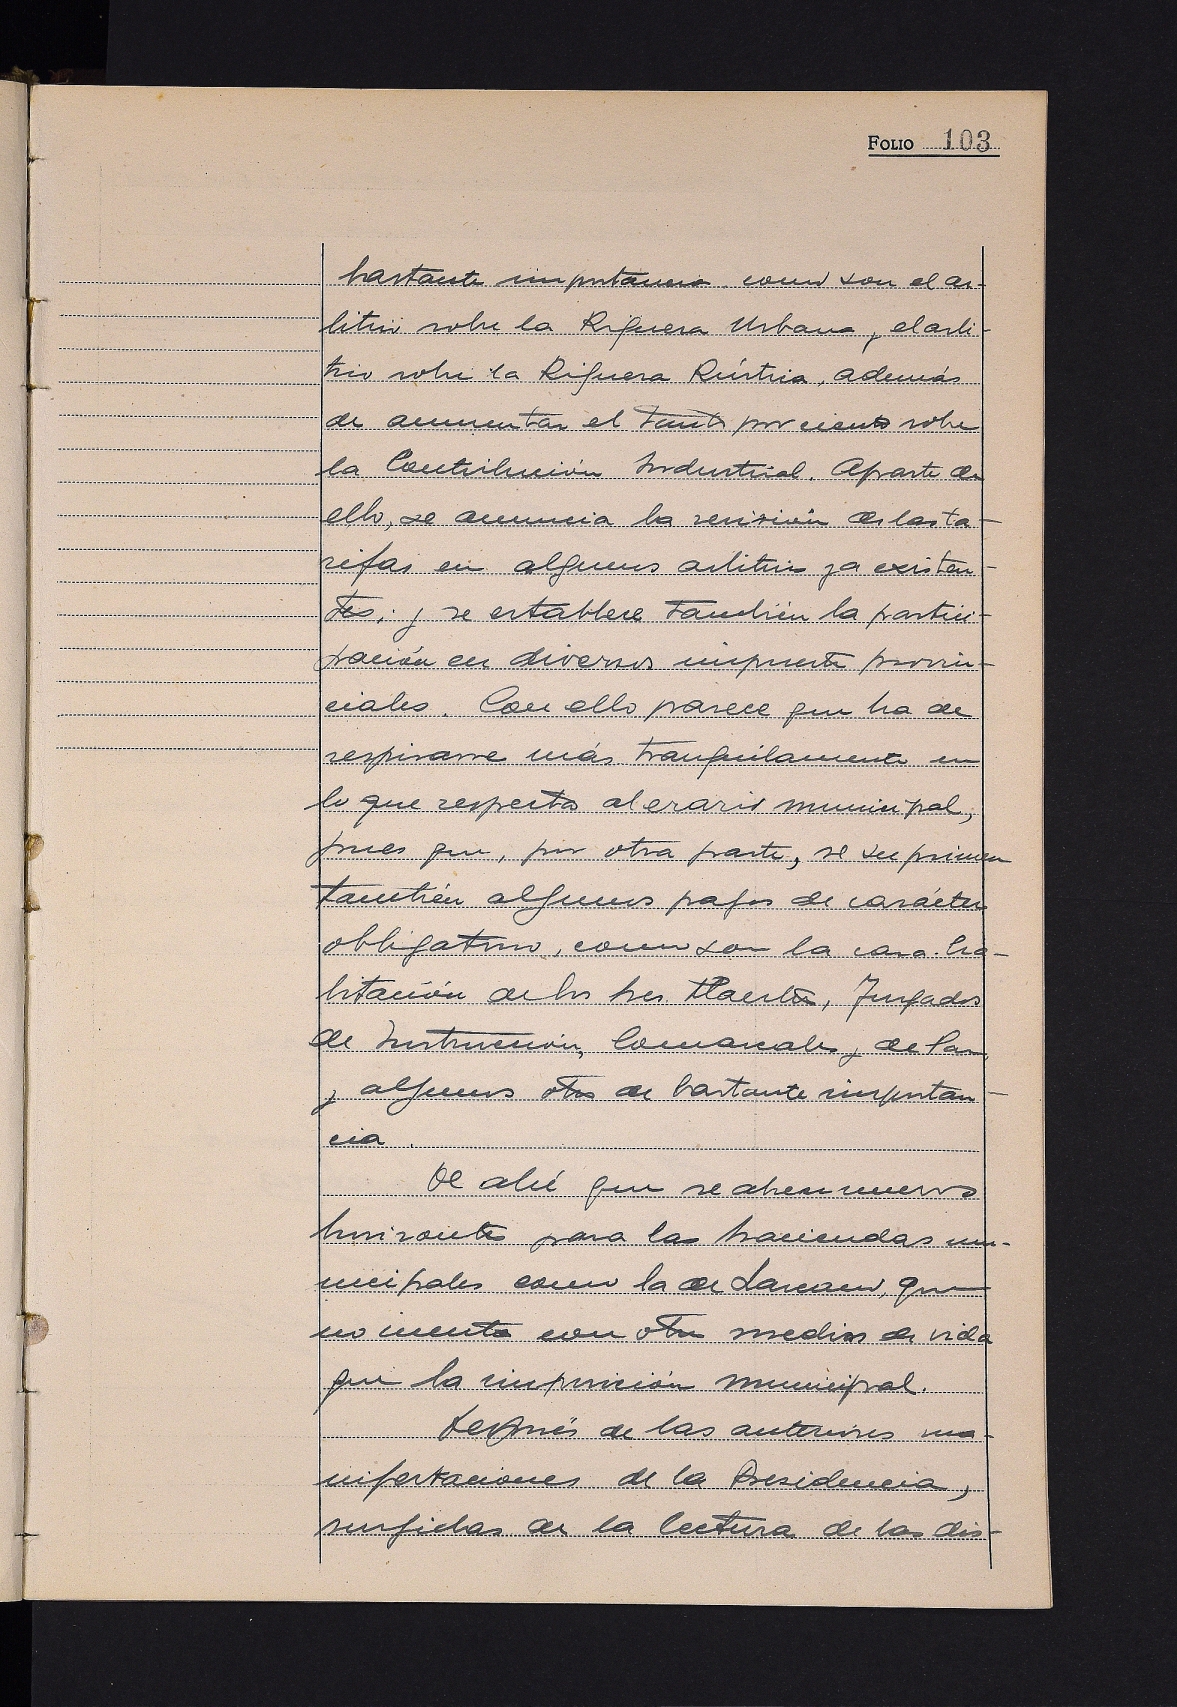 FOLIO 103
bastante importancia como son el ar-
bitrio sobre la Riqueza Urbana, el arbi-
trio sobre la Riqueza Rústica, además
de aumentar el tanto por ciento sobre
la Contribución Industrial. Aparte de
ello, se anuncia la revisión de las ta-
rifas en algunos arbitrios ya existen-
tes; y se establece también la partici-
pación en diversos impuestos provin-
ciales. Con ello parece que ha de
respirarse más tranquilamente en
lo que respecta al erario municipal,
pues que, por otra parte, se suprimen
también algunos pagos de carácter
obligatorio, como son la casa-ha-
bitación de los tres Maestros, Juzgados
de Instrucción, Comarcales y de Paz,
y algunos otros de bastante importan-
cia.
De ahí que se abren nuevos
horizontes para las haciendas mu-
nicipales como la de Lazcano, que
no cuenta con otros medios de vida
que la imposición municipal.
Después de las anteriores ma-
nifestaciones de la Presidencia,
surgidas de la lectura de las dis-